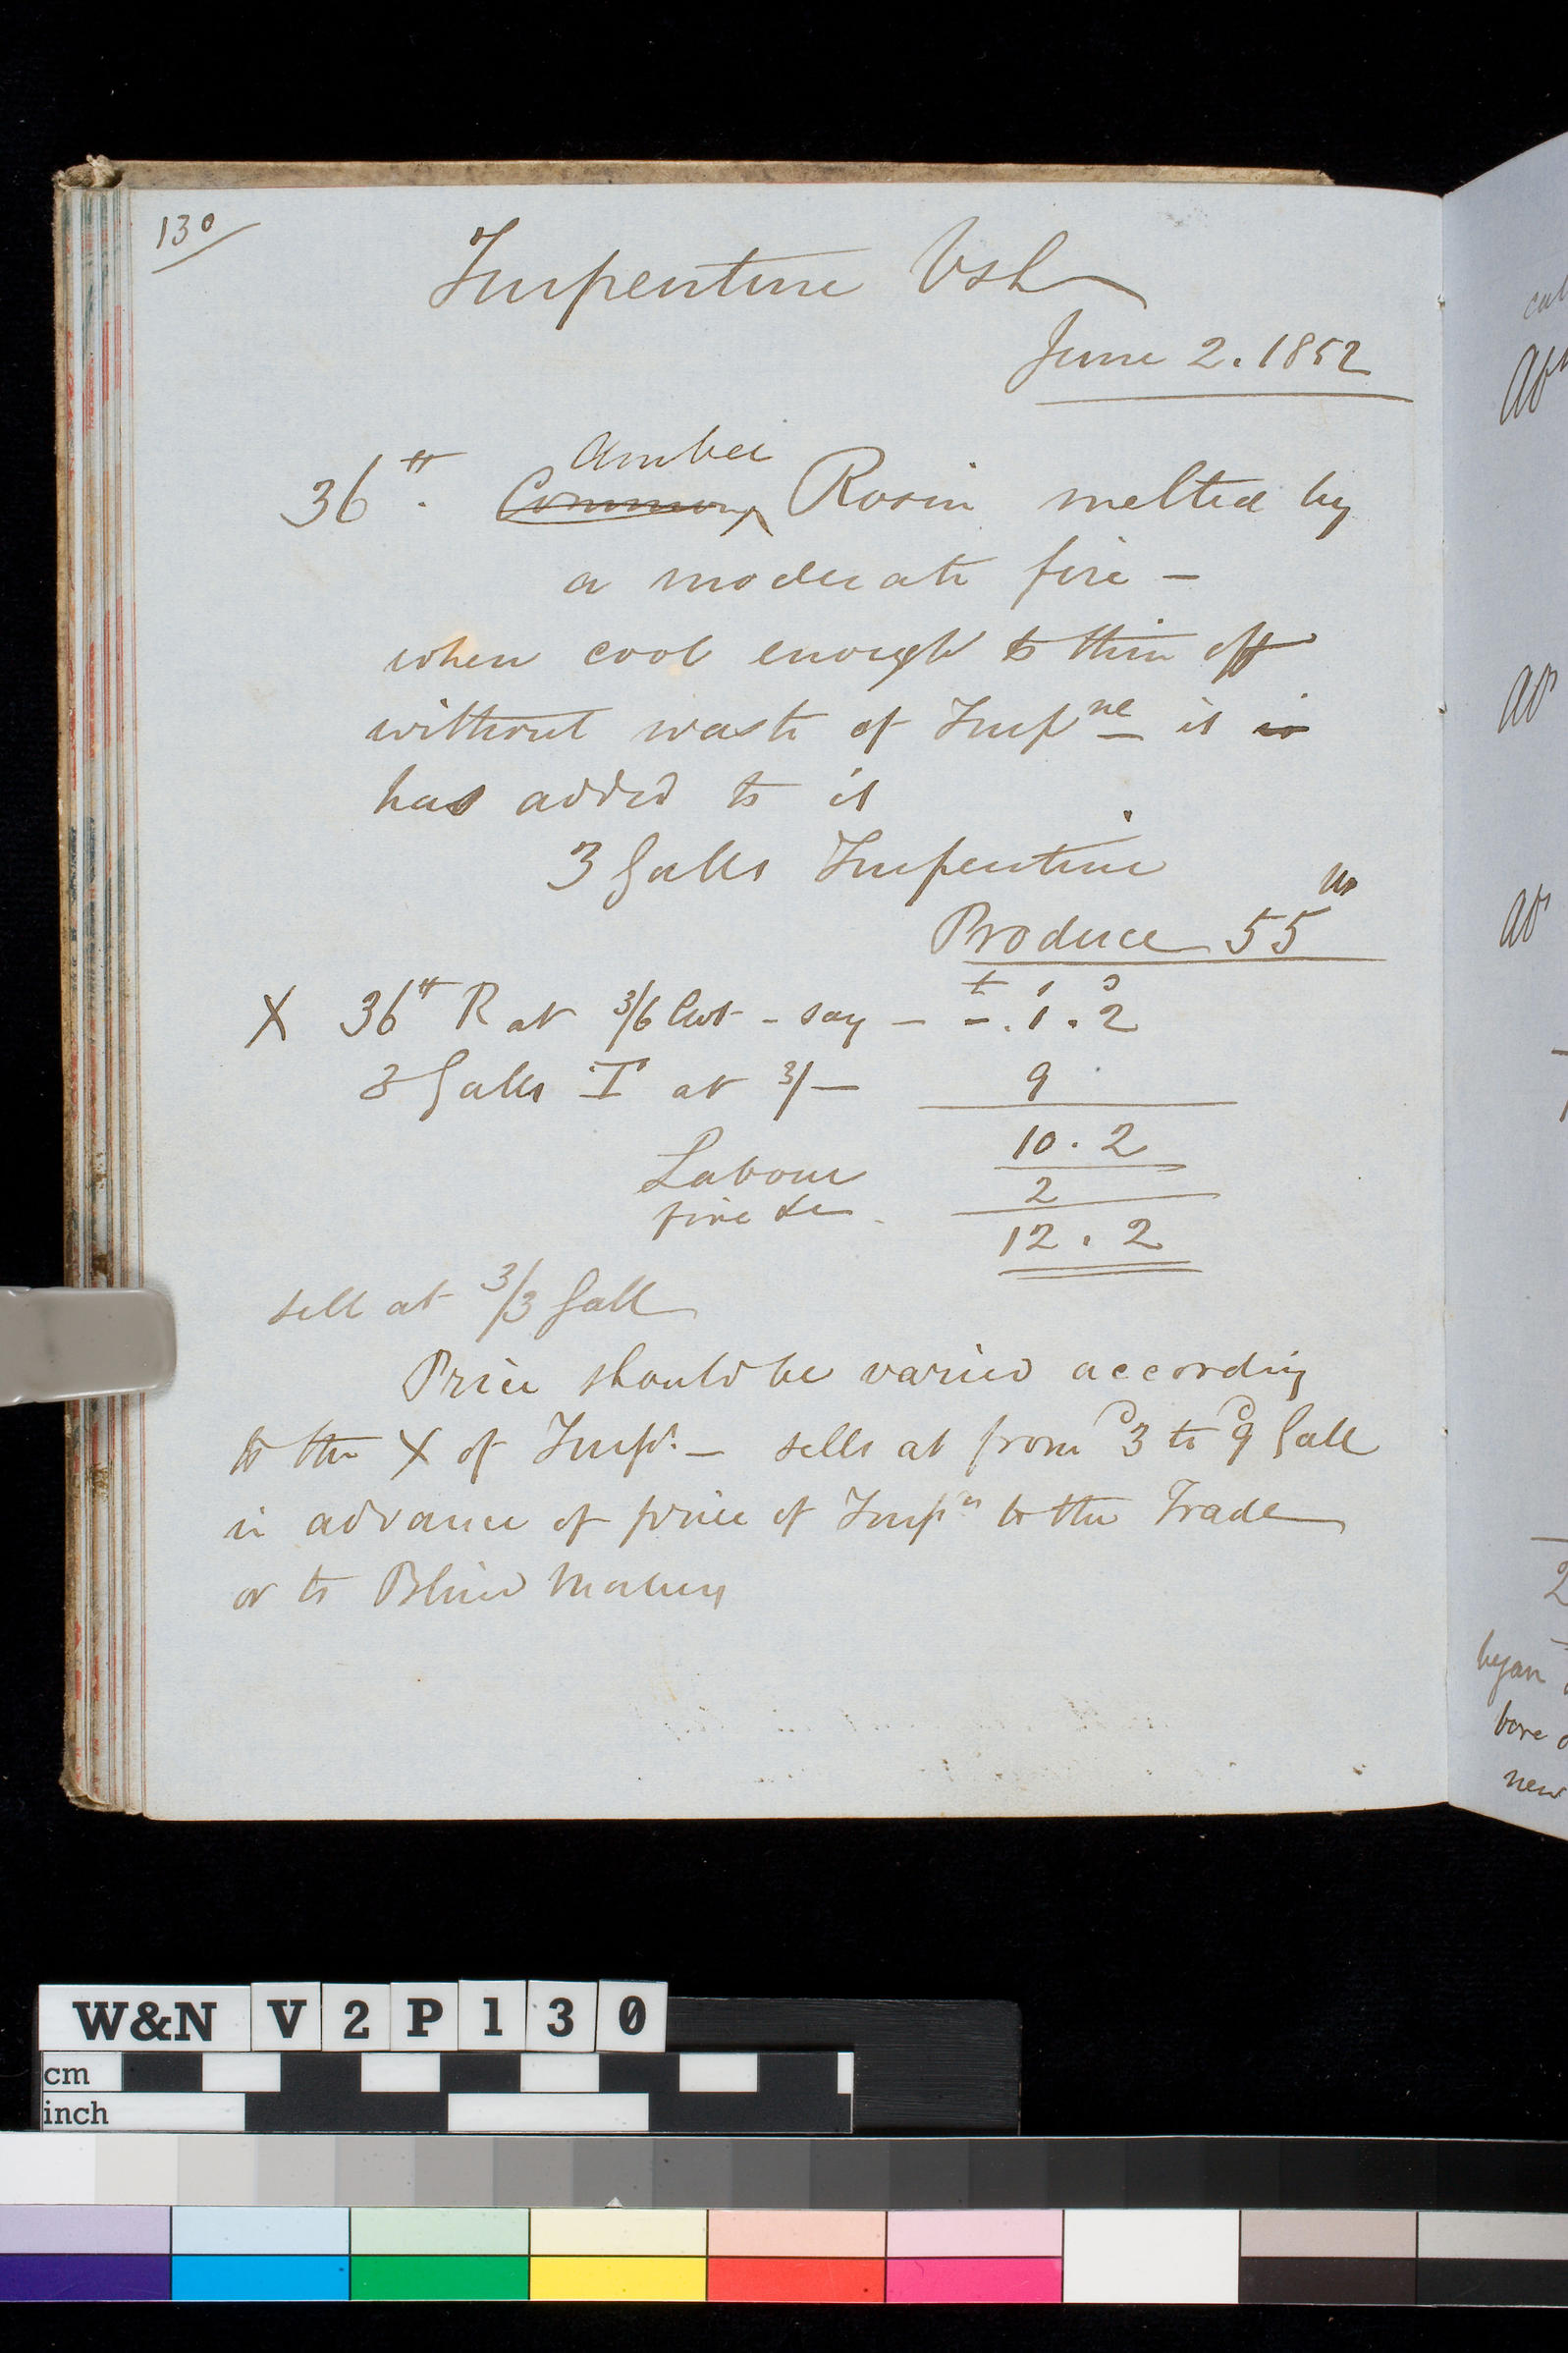 130
Turpentine Vsh
June 2. 1852
Amber
36 lb. Common Rosin melted by
a moderate fire -
when cool enough to thin off
without waste of Turpne it is
has added to it
3 Galls Turpentine
Produce 55 lbs
£ s d
X 36 lb R at 3/6 Cwt - say - -. 1. 2
3 Galls T at 3/- 9
10. 2
Labour
fire &c 2
12. 2
sell at 3/3 Gall
Price should be varied according
to the X of Turps. - sells at from d3 to d9 Gall
in advance of price of Turps to the Trade
or to Blind Makers
W&N V2P130
cm
inch
began
bore
new